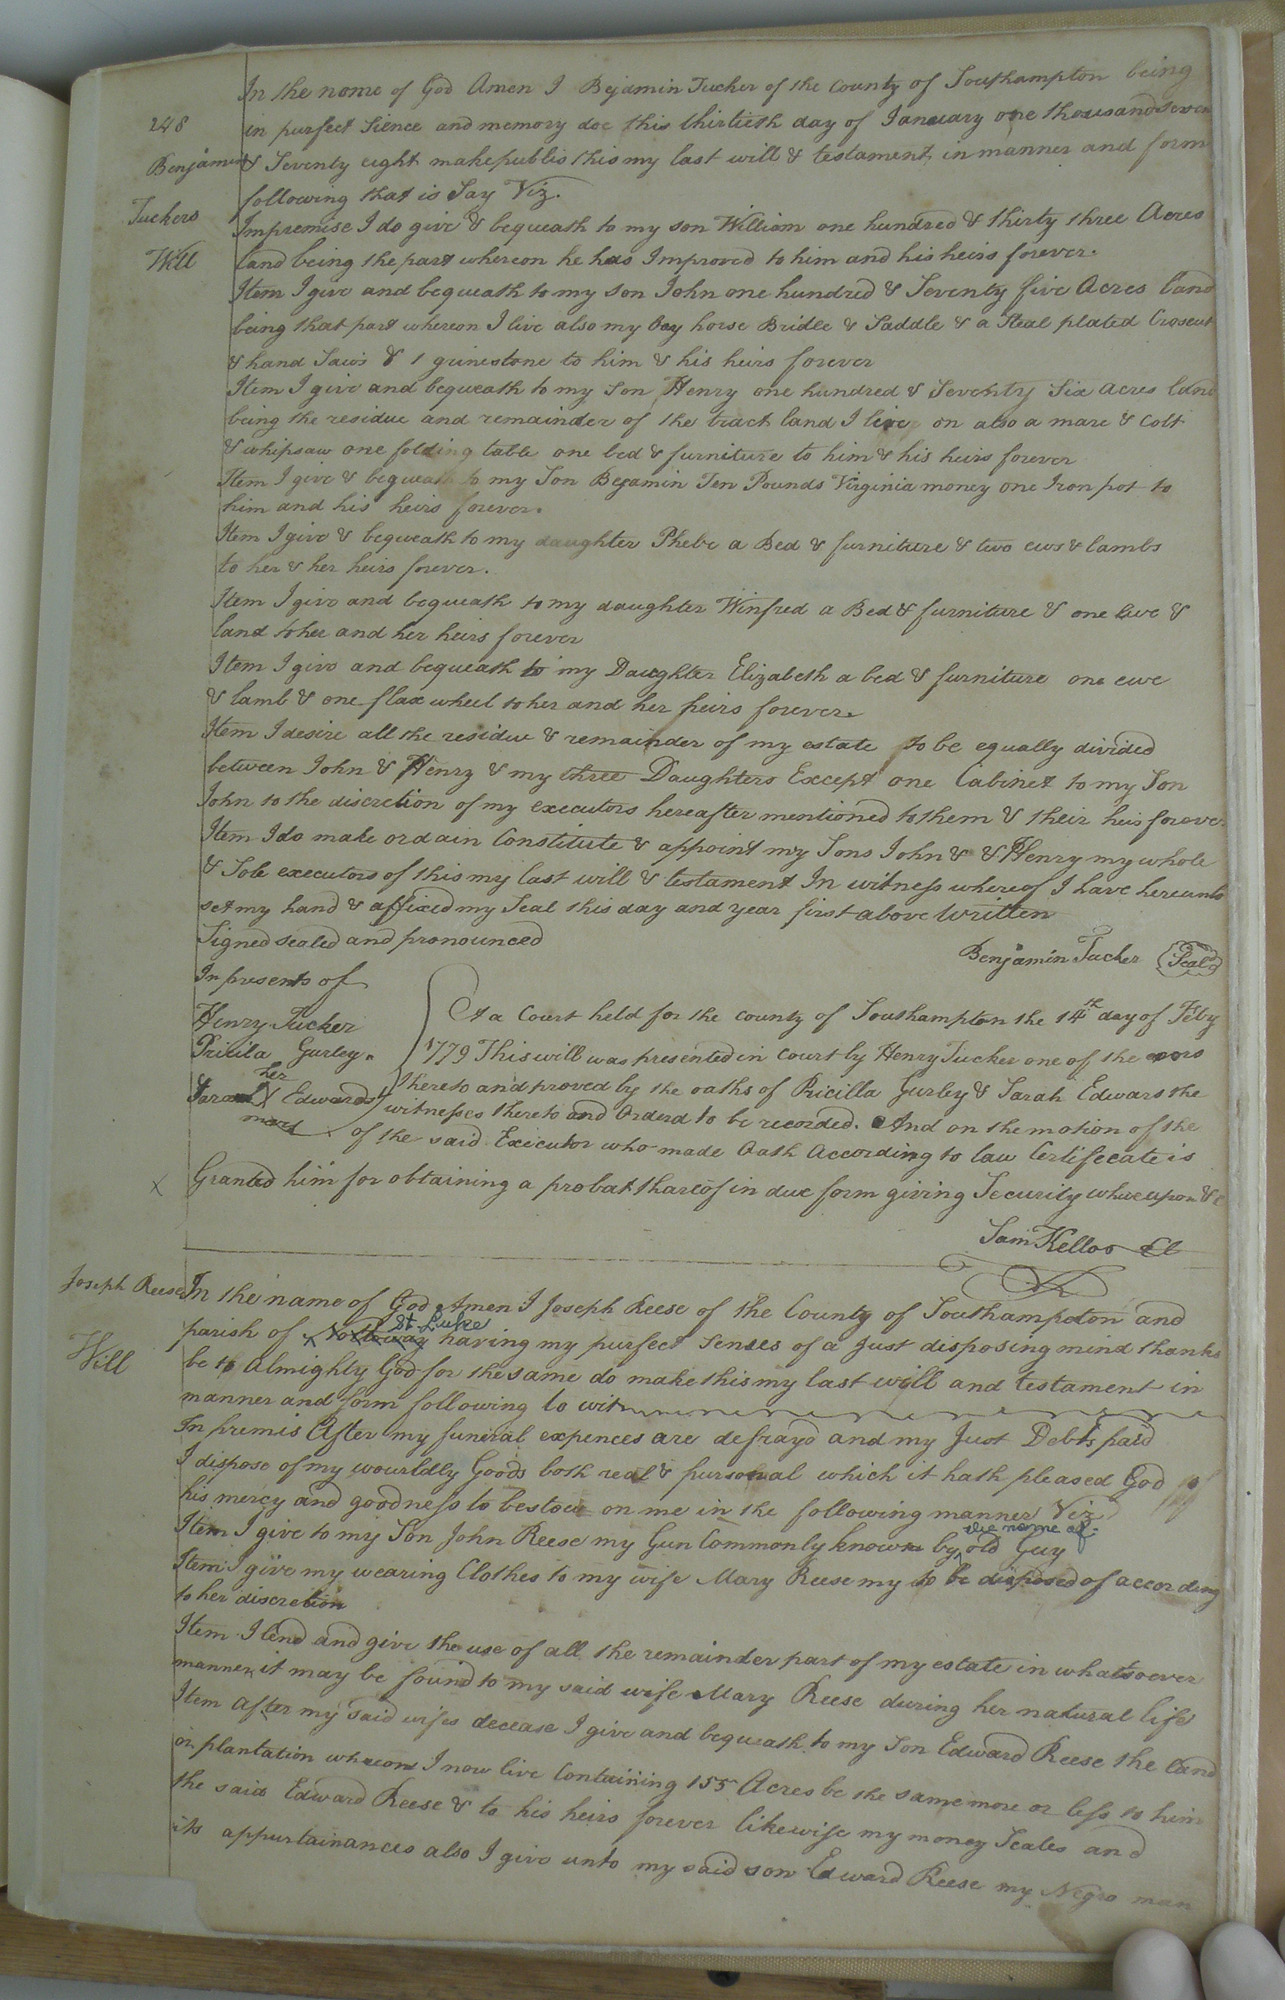 248
Benjamin
Tuckers
Will
In the name of God Amen I Bejamin Tucker of the County of Southampton being
in purfect Sience and memory doe this thirtieth day of January one thousand seven
& Seventy eight make publis this my last will & testament in manner and form
following that is Say Viz.
Impremise I do give & bequeath to my son William one hundred & thirty three Acres
Land being the part whereon he has Improved to him and his heirs forever.
Item I give and bequeath to my Son John one hundred & Seventy five Acres Land
being that part whereon I live also my bay horse Bridle & Saddle & a Steal plated Croscut
& hand Saws & 1 grinestone to him & his heirs forever
Item I give and bequeath to my Son Henry one hundred & Seventy Six Acres Land
being the residue and remainder of the tract land I live on also a mare & Colt
& whipsaw one folding table one bed & furniture to him & his heirs forever
Item I give & bequeath to my Son Bejamin Ten Pounds Virginia money one Iron pot to
him and his heirs forever.
Item I give & bequeath to my daughter Phebe a Bed & furniture & two ews & lambs
to her & her heirs forever.
Item I give and bequeath to my daughter Winfred a Bed & furniture & one Ewe &
land to her and her heirs forever
Item I give and bequeath to my Daughter Elizabeth a bed & furniture one ewe
& lamb & one flax wheel to her and her heirs forever.
Item I desire all the residue & remainder of my estate to be equally divided
between John & Henry & my three Daughters Except one Cabinet to my Son
John to the discretion of my executors hereafter mentioned to them & their heis forever
Item I do make ordain Constitute & appoint my Sons John & & Henry my whole
& Sole executors of this my last will & testament In witness whereof I have hereunto
set my hand & affixed my Seal this day and year first above Written
Signed sealed and pronounced
Benjamin Tucker Seal
In presents of
Henry Tucker
Pricila Gurley.
her
Sarah X Edwards
mark
At a Court held for the county of Southampton the 14th day of Feby
1779 This will was presented in Court by Henry Tucker one of the exors
thereto and proved by the oaths of Pricilla Gurley & Sarah Edwards the
witnesses thereto and Orderd to be recorded. And on the motion of the
of the said Executor who made Oath According to law Certifecate is
X Granted him for obtaining a probat thareof in due form giving Security whereupon &c
Sam Kello Cl
Joseph Reeses
Will
In the name of God Amen I Joseph Reese of the County of Southampton and
St. Luke
parish of Nottoway having my purfect Senses of a just disposing mind thanks
be to Almighty God for the same do make this my last will and testament in
manner and form following to wit
Inpremis After my funeral expences are defrayd and my Just Debts paid
I dispose of my wourldly Goods both real & pursonal which it hath pleased God of
his mercy and goodness to bestow on me in the following manner Viz
the name of
Item I give to my Son John Reese my Gun Commonly known by old Guy
Item I give my wearing Clothes to my wife Mary Reese my to be disposed of according
to her discretion
Item I lend and give the use of all the remainder part of my estate in whatsoever
manner it may be found to my said wife Mary Reese during her natural life
Item after my said wifes decease I give and bequeath to my Son Edward Reese the Land
or plantation whereon I now live Containing 155 Acres be the same more or less to him
the said Edward Reese & to his heirs forever likewise my money Scales and
its appurtainances also I give unto my said son Edward Reese my Negro man